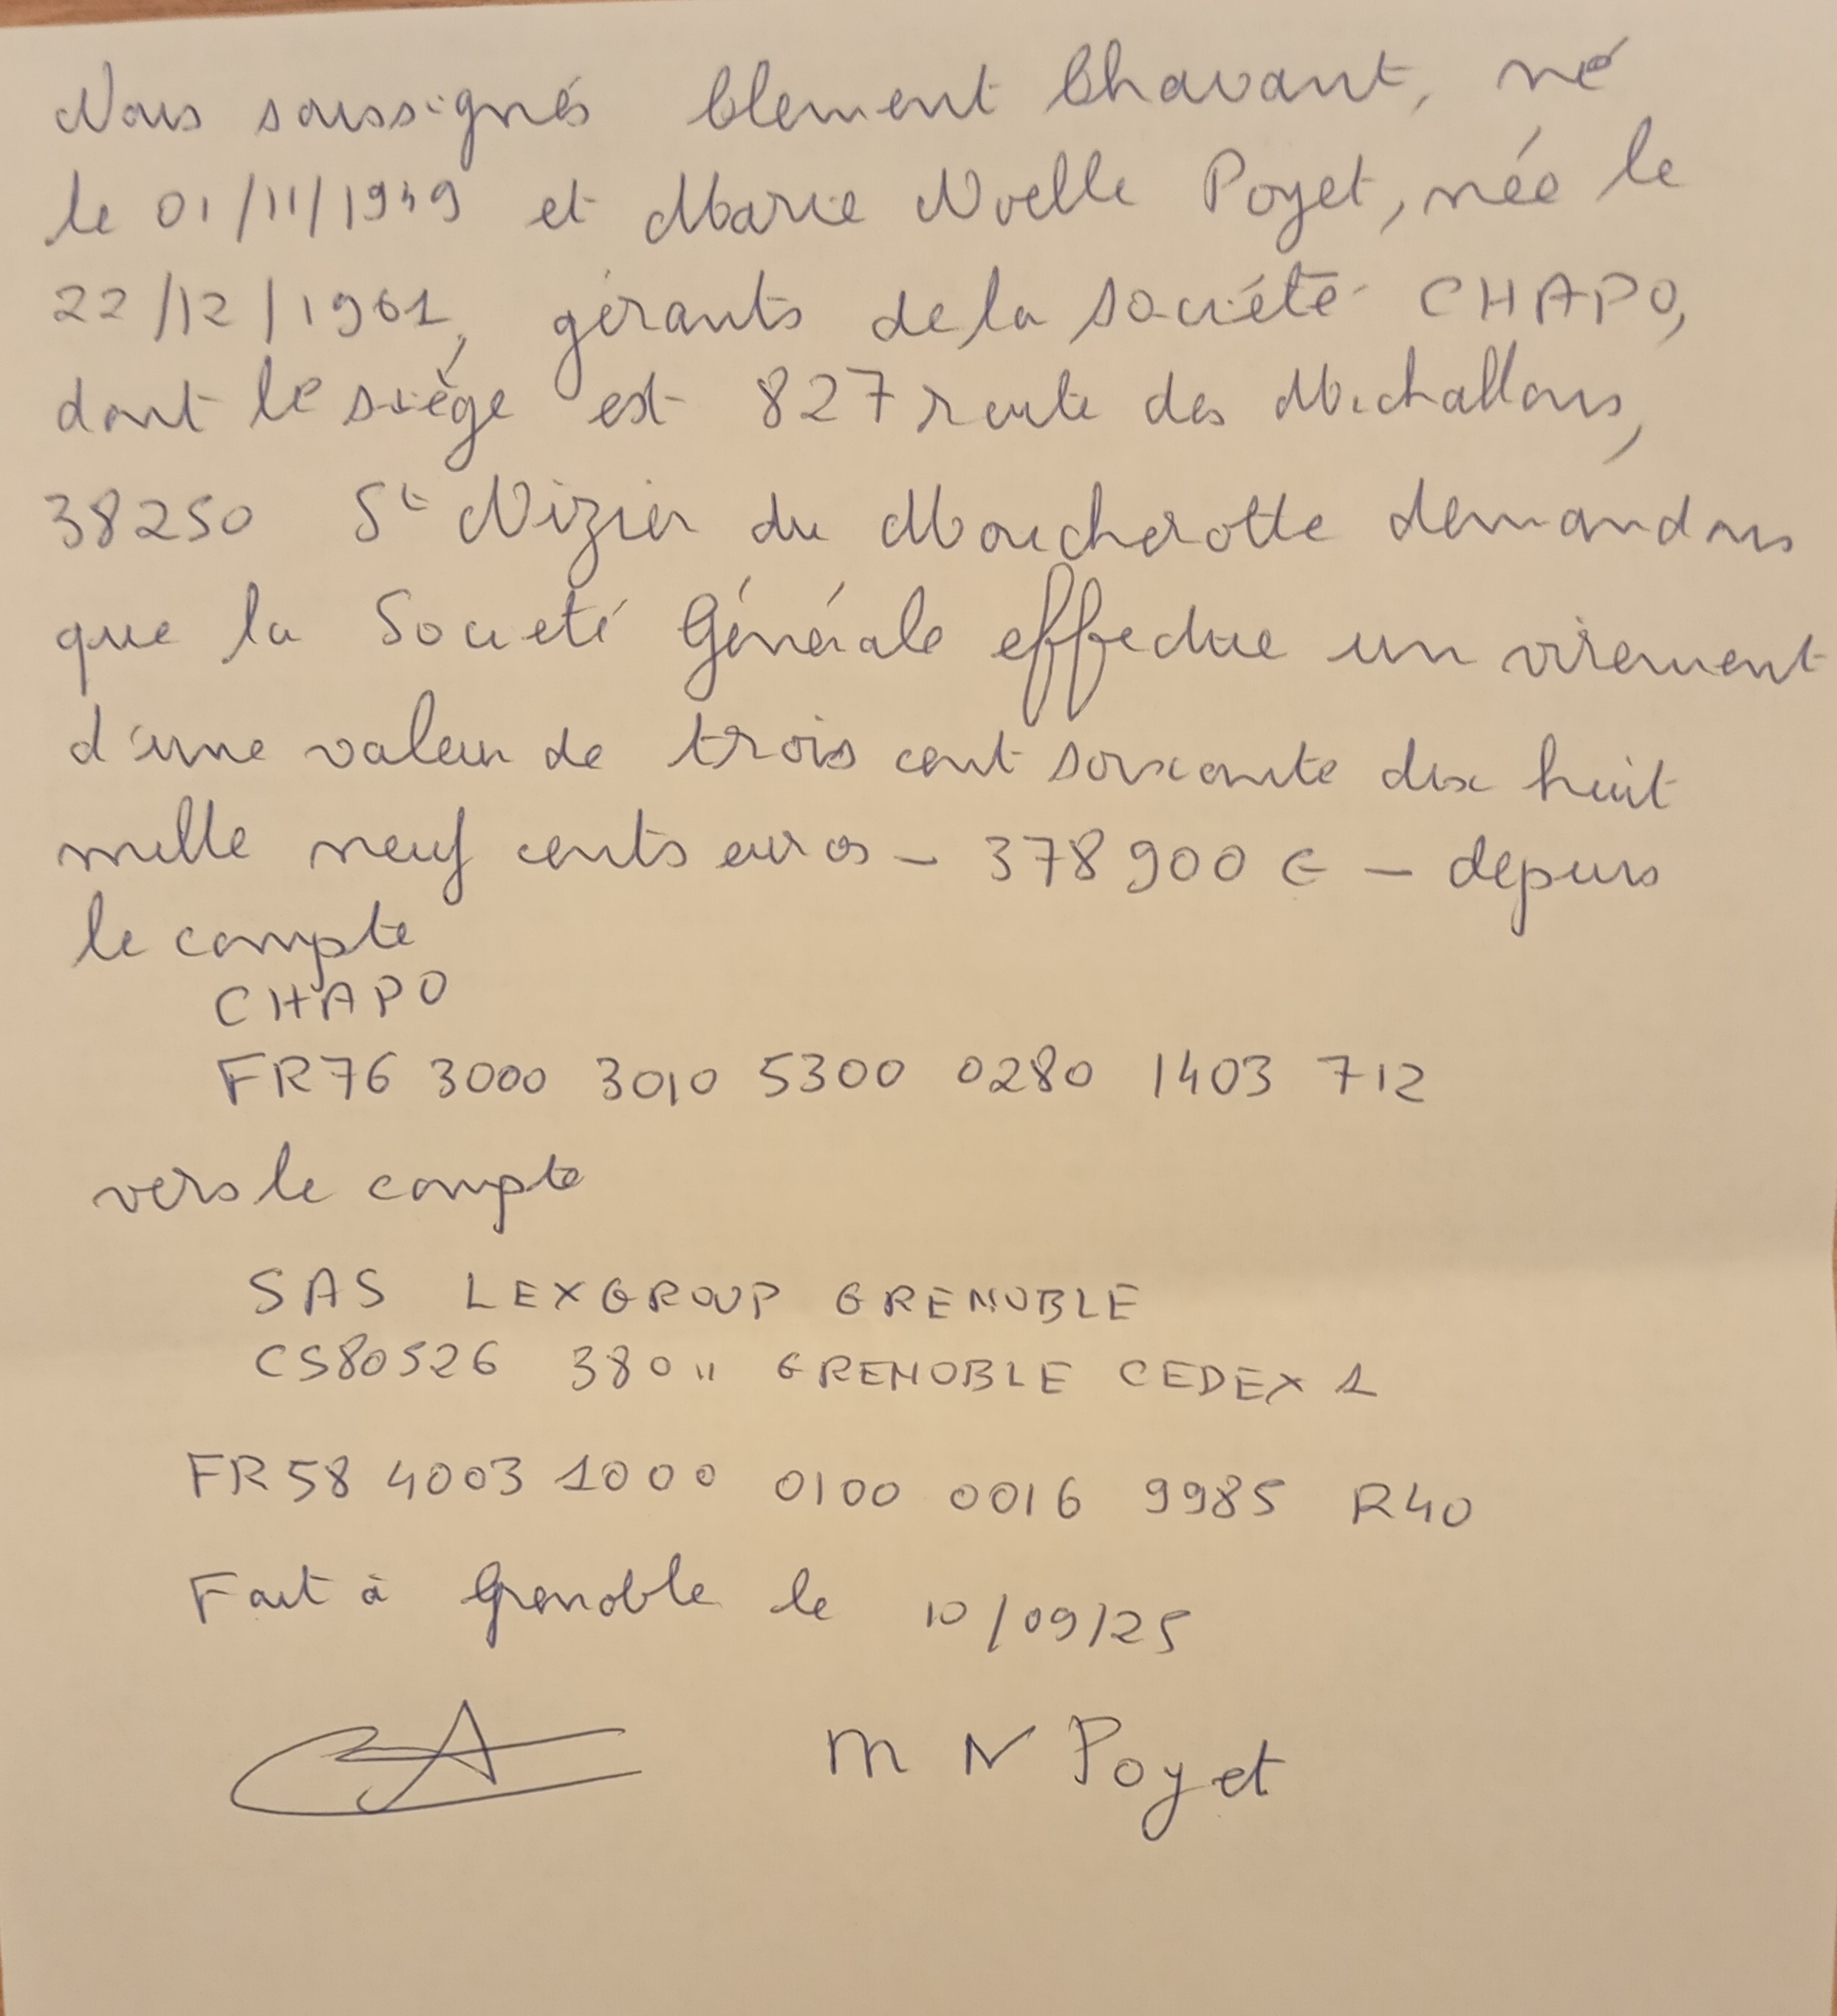 Nous soussignés Clement Chavant, né
le 01/11/1949 et Marie Noelle Poyet, née le
22/12/1961, gérants de la société CHAPO,
dont le siège est 827 route des Michallons,
38250 St Nizier du Moucherotte demandons
que la Societé Générale effectue un virement
d'une valeur de trois cent soixante dix huit
mille neuf cents euros - 378 900 € - depuis
le compte
CHAPO
FR76 3000 3010 5300 0280 1403 712
vers le compte
SAS LEXGROUP GRENOBLE
CS80526 38011 GRENOBLE CEDEX 1
FR58 4003 1000 0100 0016 9985 R40
Fait à Grenoble le 10/09/25
M N Poyet